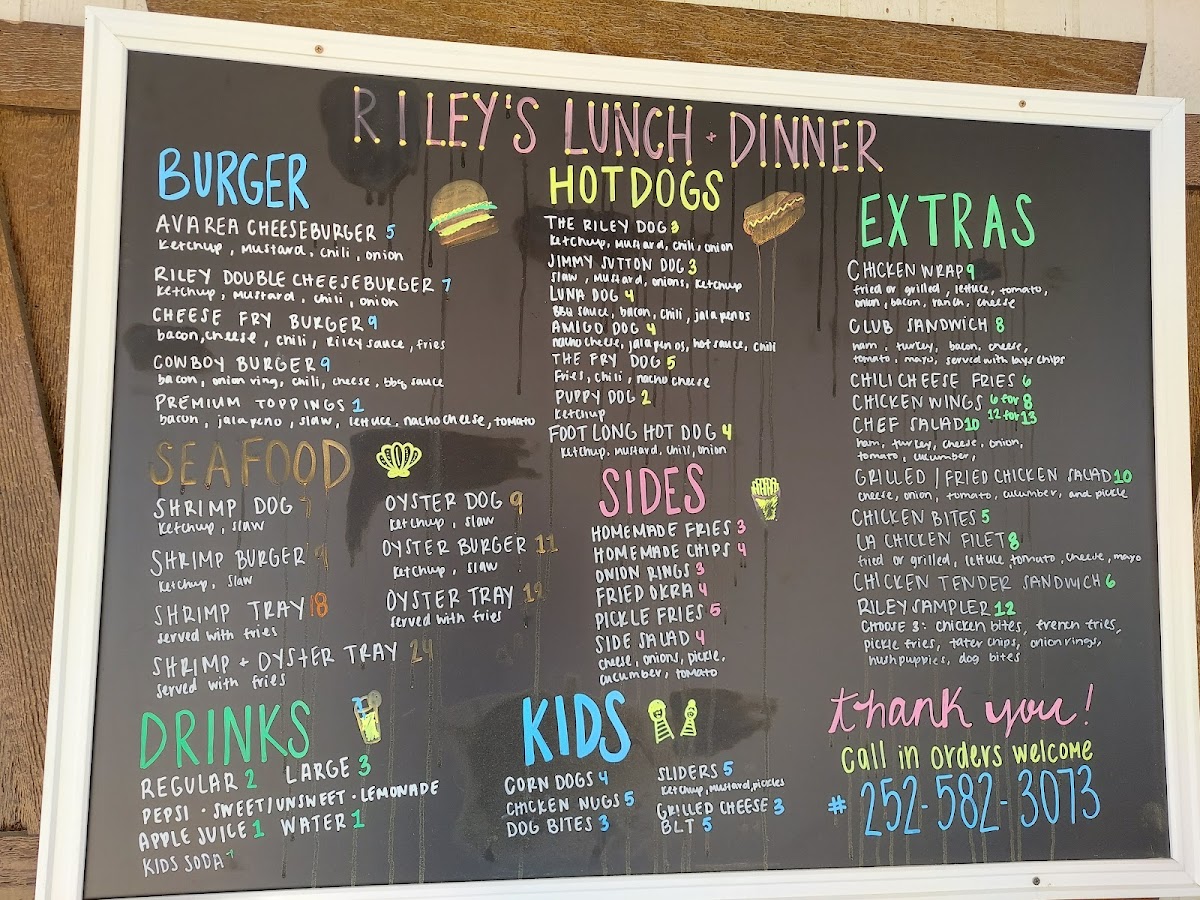 RILEY'S LUNCH + DINNER
BURGER
AVAREA CHEESEBURGER 5
ketchup, mustard, chili, onion
RILEY DOUBLE CHEESEBURGER 7
ketchup, mustard, chili, onion
CHEESE FRY BURGER 9
bacon, cheese, chili, Riley sauce, fries
COWBOY BURGER 9
bacon, onion ring, chili, cheese, bbq sauce
PREMIUM TOPPINGS 1
bacon, jalapeno, slaw, lettuce, nacho cheese, tomato
SEAFOOD
SHRIMP DOG 7
ketchup, slaw
SHRIMP BURGER 9
ketchup, slaw
SHRIMP TRAY 18
served with fries
SHRIMP + OYSTER TRAY 24
served with fries
OYSTER DOG 9
ketchup, slaw
OYSTER BURGER 11
ketchup, slaw
OYSTER TRAY
served with fries
DRINKS
REGULAR 2 LARGE 3
PEPSI · SWEET/UNSWEET · LEMONADE
APPLE JUICE 1 WATER 1
KIDS SODA 1
HOTDOGS
THE RILEY DOG 3
ketchup, mustard, chili, onion
JIMMY SUTTON DOG 3
slaw, mustard, onions, ketchup
LUNA DOG 4
BBQ sauce, bacon, chili, jalapenos
AMIGO DOG 4
nacho cheese, jalapenos, hot sauce, chili
THE FRY DOG 5
Fries, chili, nacho cheese
PUPPY DOG 2
ketchup
FOOT LONG HOT DOG 4
ketchup, mustard, chili, onion
SIDES
HOMEMADE FRIES 3
HOMEMADE CHIPS 4
ONION RINGS 3
FRIED OKRA 4
PICKLE FRIES 5
SIDE SALAD 4
cheese, onions, pickle,
cucumber, tomato
KIDS
CORN DOGS 4
CHICKEN NUGS 5
DOG BITES 3
SLIDERS 5
ketchup, mustard, pickles
GRILLED CHEESE 3
BLT 5
EXTRAS
CHICKEN WRAP 9
fried or grilled, lettuce, tomato,
onion, bacon, ranch, cheese
CLUB SANDWICH 8
ham, turkey, bacon, cheese,
tomato, mayo, served with lays chips
CHILI CHEESE FRIES 6
CHICKEN WINGS 6 for 8
12 for 13
CHEF SALAD 10
ham, turkey, cheese, onion,
tomato, cucumber,
GRILLED / FRIED CHICKEN SALAD 10
cheese, onion, tomato, cucumber, and pickle
CHICKEN BITES 5
LA CHICKEN FILET 8
fried or grilled, lettuce, tomato, cheese, mayo
CHICKEN TENDER SANDWICH 6
RILEY SAMPLER 12
CHOOSE 3: chicken bites, french fries,
pickle fries, tater chips, onion rings,
hushpuppies, dog bites
thank you!
call in orders welcome
# 252-582-3073